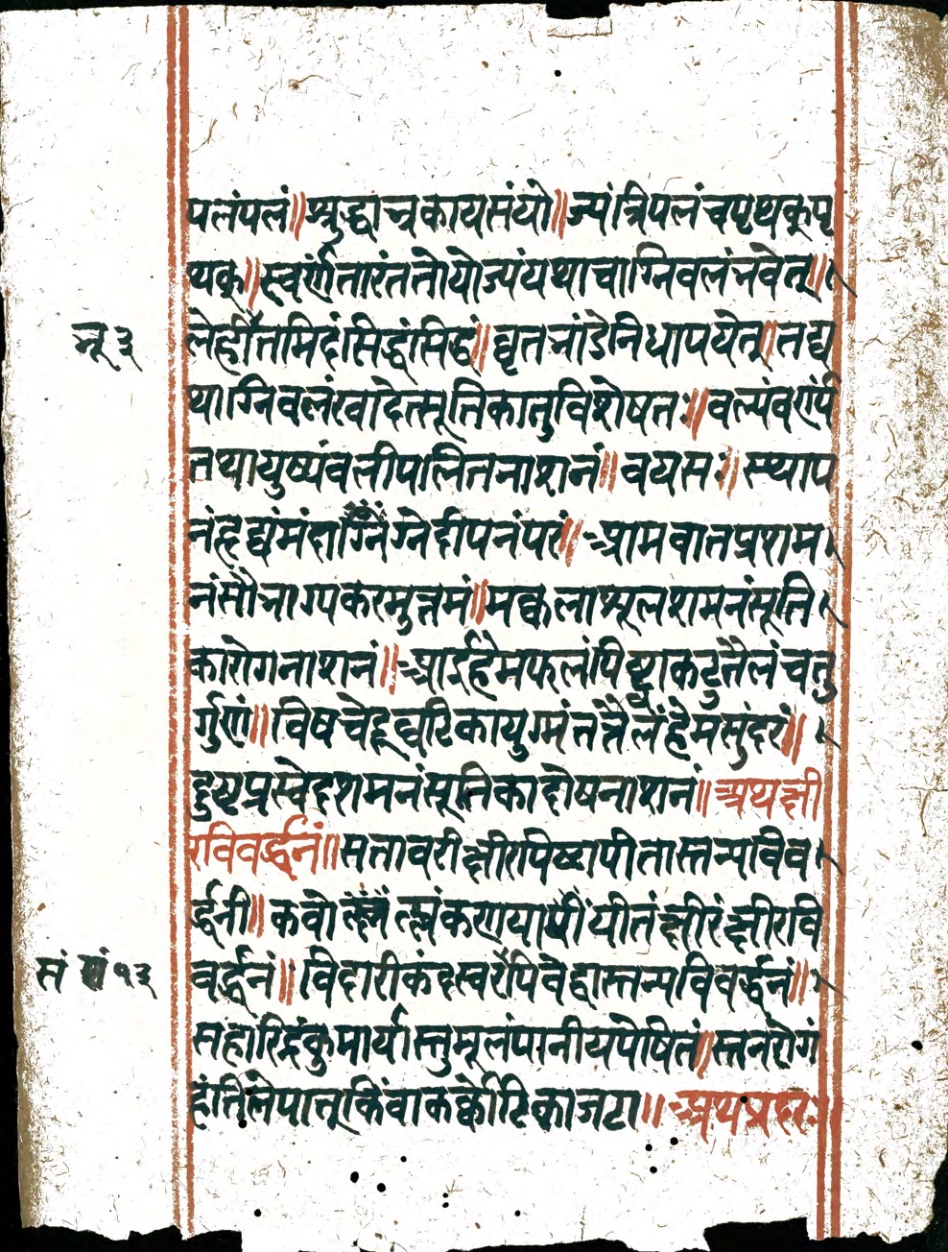 पलंपलं॥ शुद्धाच्चकायसंयो॥ज्यांत्रिपलंचपृथक्पृ
थक्॥ स्वर्णंतारंततोयोज्यंयथाचाग्निवलंभवेत्॥
भू ३ लेहोत्तमिदंसिद्धंसिद्धं॥ घृतभांडेनिधापयेत्॥तद्य
थाग्निवलंखादेत्सूतिकातुविशेषतः॥ वल्यंवर्ण्यं
तथायुष्यंवलीपलितनाशनं॥ वयसः॥ स्थाप
नंहृद्यंमंदाग्नेदीपनंपरं॥ आमवातप्रशम
नंसौभाग्यकरमुत्तमं॥मक्कलाशूलशमनंसूति
कारोगनाशनं॥ आर्द्रहेमफलंपिष्ट्वाकटुतैलंचतु
र्गुणं॥ विषचेद्घटिकायुग्मंतत्तैलंहेमसुंदरं॥
दुष्टप्रस्वेदशमनंसूतिकादोषनाशनं॥ अथक्षी
रविवर्द्धनं॥ सतावरीक्षीरपिष्टापीतास्तन्यविव
र्द्धनी॥ कवो त्ह्मंकणयापीतंक्षीरंक्षीरवि
सं १३ वर्द्धनं॥ विदारीकंदस्वरसंपिवेद्वास्तन्यविवर्द्धनं॥
सहारिद्रंकुमार्यास्तुमूलंपानीयपेषितं॥ स्तनरोगं
हंतिलेपात्तूकिंवाकर्कोटिकाजटा॥ अथप्रदरः